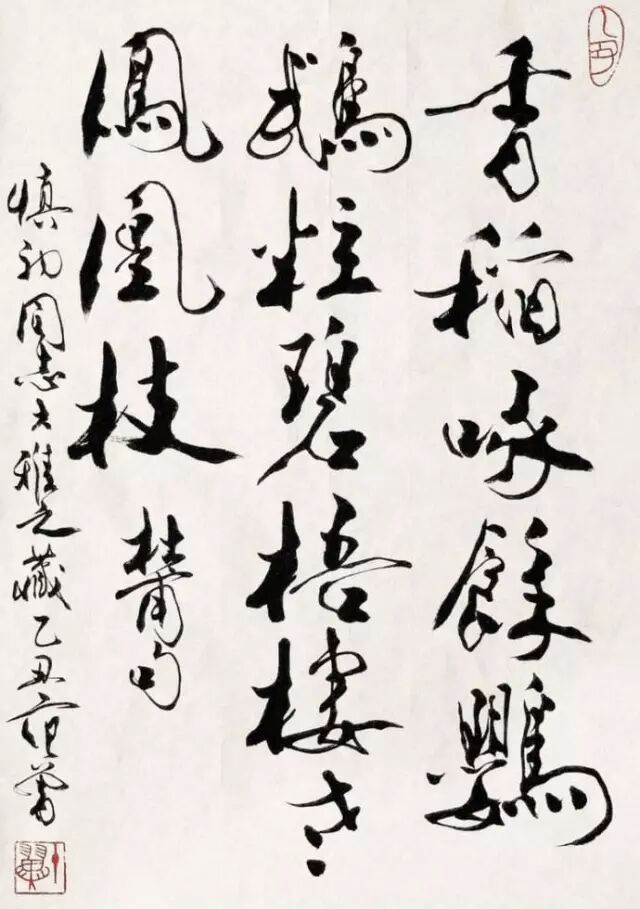 香稻啄餘鸚
鵡粒碧梧棲老
鳳凰枝 杜甫句
慎同志大雅之藏乙丑范曾